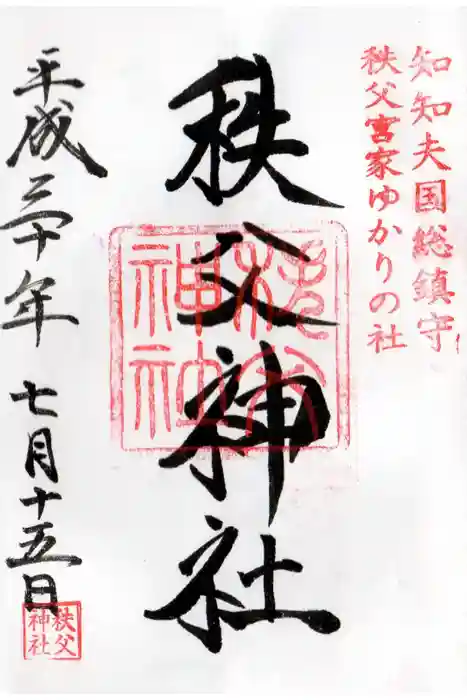 知知夫国総鎮守
秩父宮家ゆかりの社
秩父神社
秩父神社
平成三十年七月十五日
秩父神社